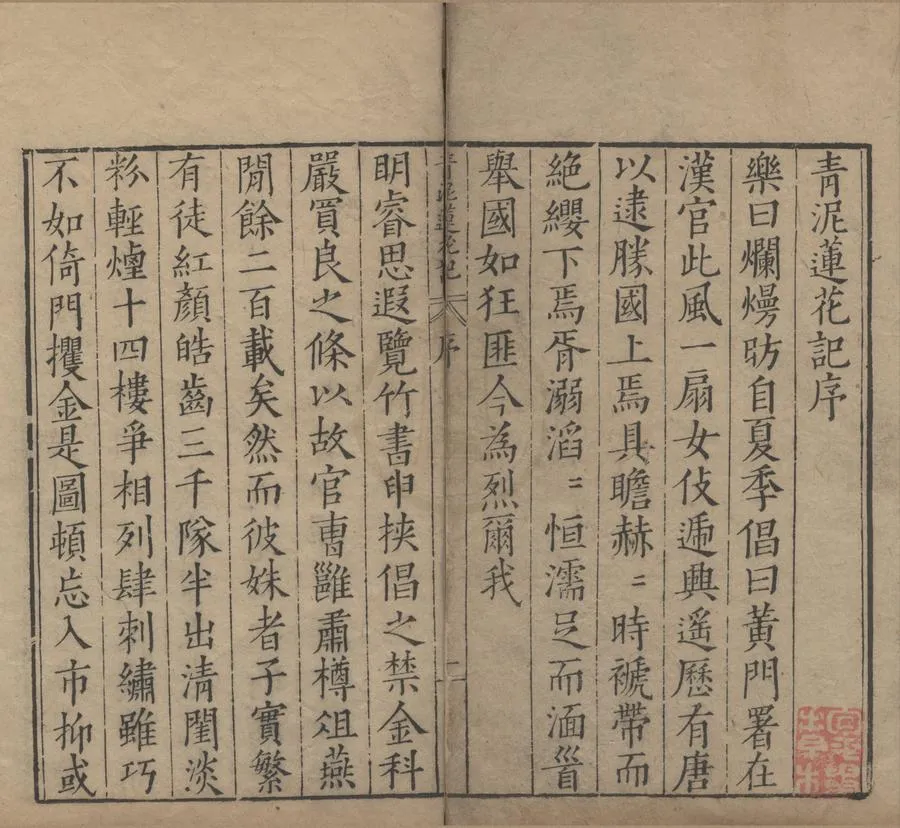 青泥蓮花記序
樂曰爛熳昉自夏季倡曰黃門署在
漢官此風一扇女伎逓興遙歷有唐
以逮勝國上焉具瞻赫〻時褫帶而
絶纓下焉胥溺滔〻恒濡足而湎𦙄
舉國如狂匪今為烈爾我
青泥蓮花記 序 二
明睿思遐覽竹書申挾倡之禁金科
嚴買良之條以故官曺雝肅樽俎燕
閒餘二百載矣然而彼姝者子實繁
有徒紅顏皓齒三千隊半出清閨淡
粉輕煙十四樓爭相列肆刺繡雖巧
不如倚門攫金是圖頓忘入市抑或